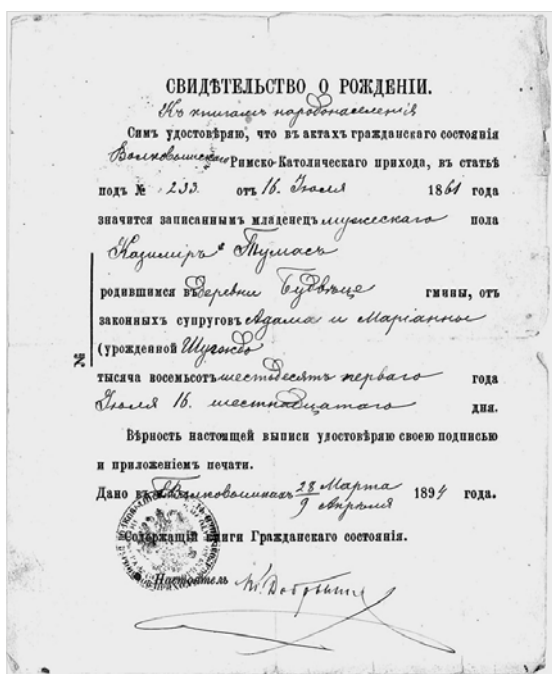 СВИДѢТЕЛЬСТВО О РОЖДЕНІИ.
Къ книгамъ народонаселенія
Симъ удостовѣряю, что въ актахъ гражданскаго состоянія
Волковышскаго Римско-Католическаго прихода, въ статьѣ
подъ № 233. отъ 16. Іюля 1861 года
значится записаннымъ младенецъ мужескаго пола
Казимиръ Тумасъ
родившимся въ деревни гмины, отъ
законныхъ супруговъ Адама и Маріанны
(урожденной
№
тысяча восемьсотъ шестьдесятъ перваго года
Іюля 16. шестнадцатаго дня.
Вѣрность настоящей выписи удостовѣряю своею подписью
и приложеніемъ печати.
Дано въ Волковышкахъ 28 Марта 9 Апрѣля 1894 года.
Содержащій книги Гражданскаго состоянія.
Настоятель